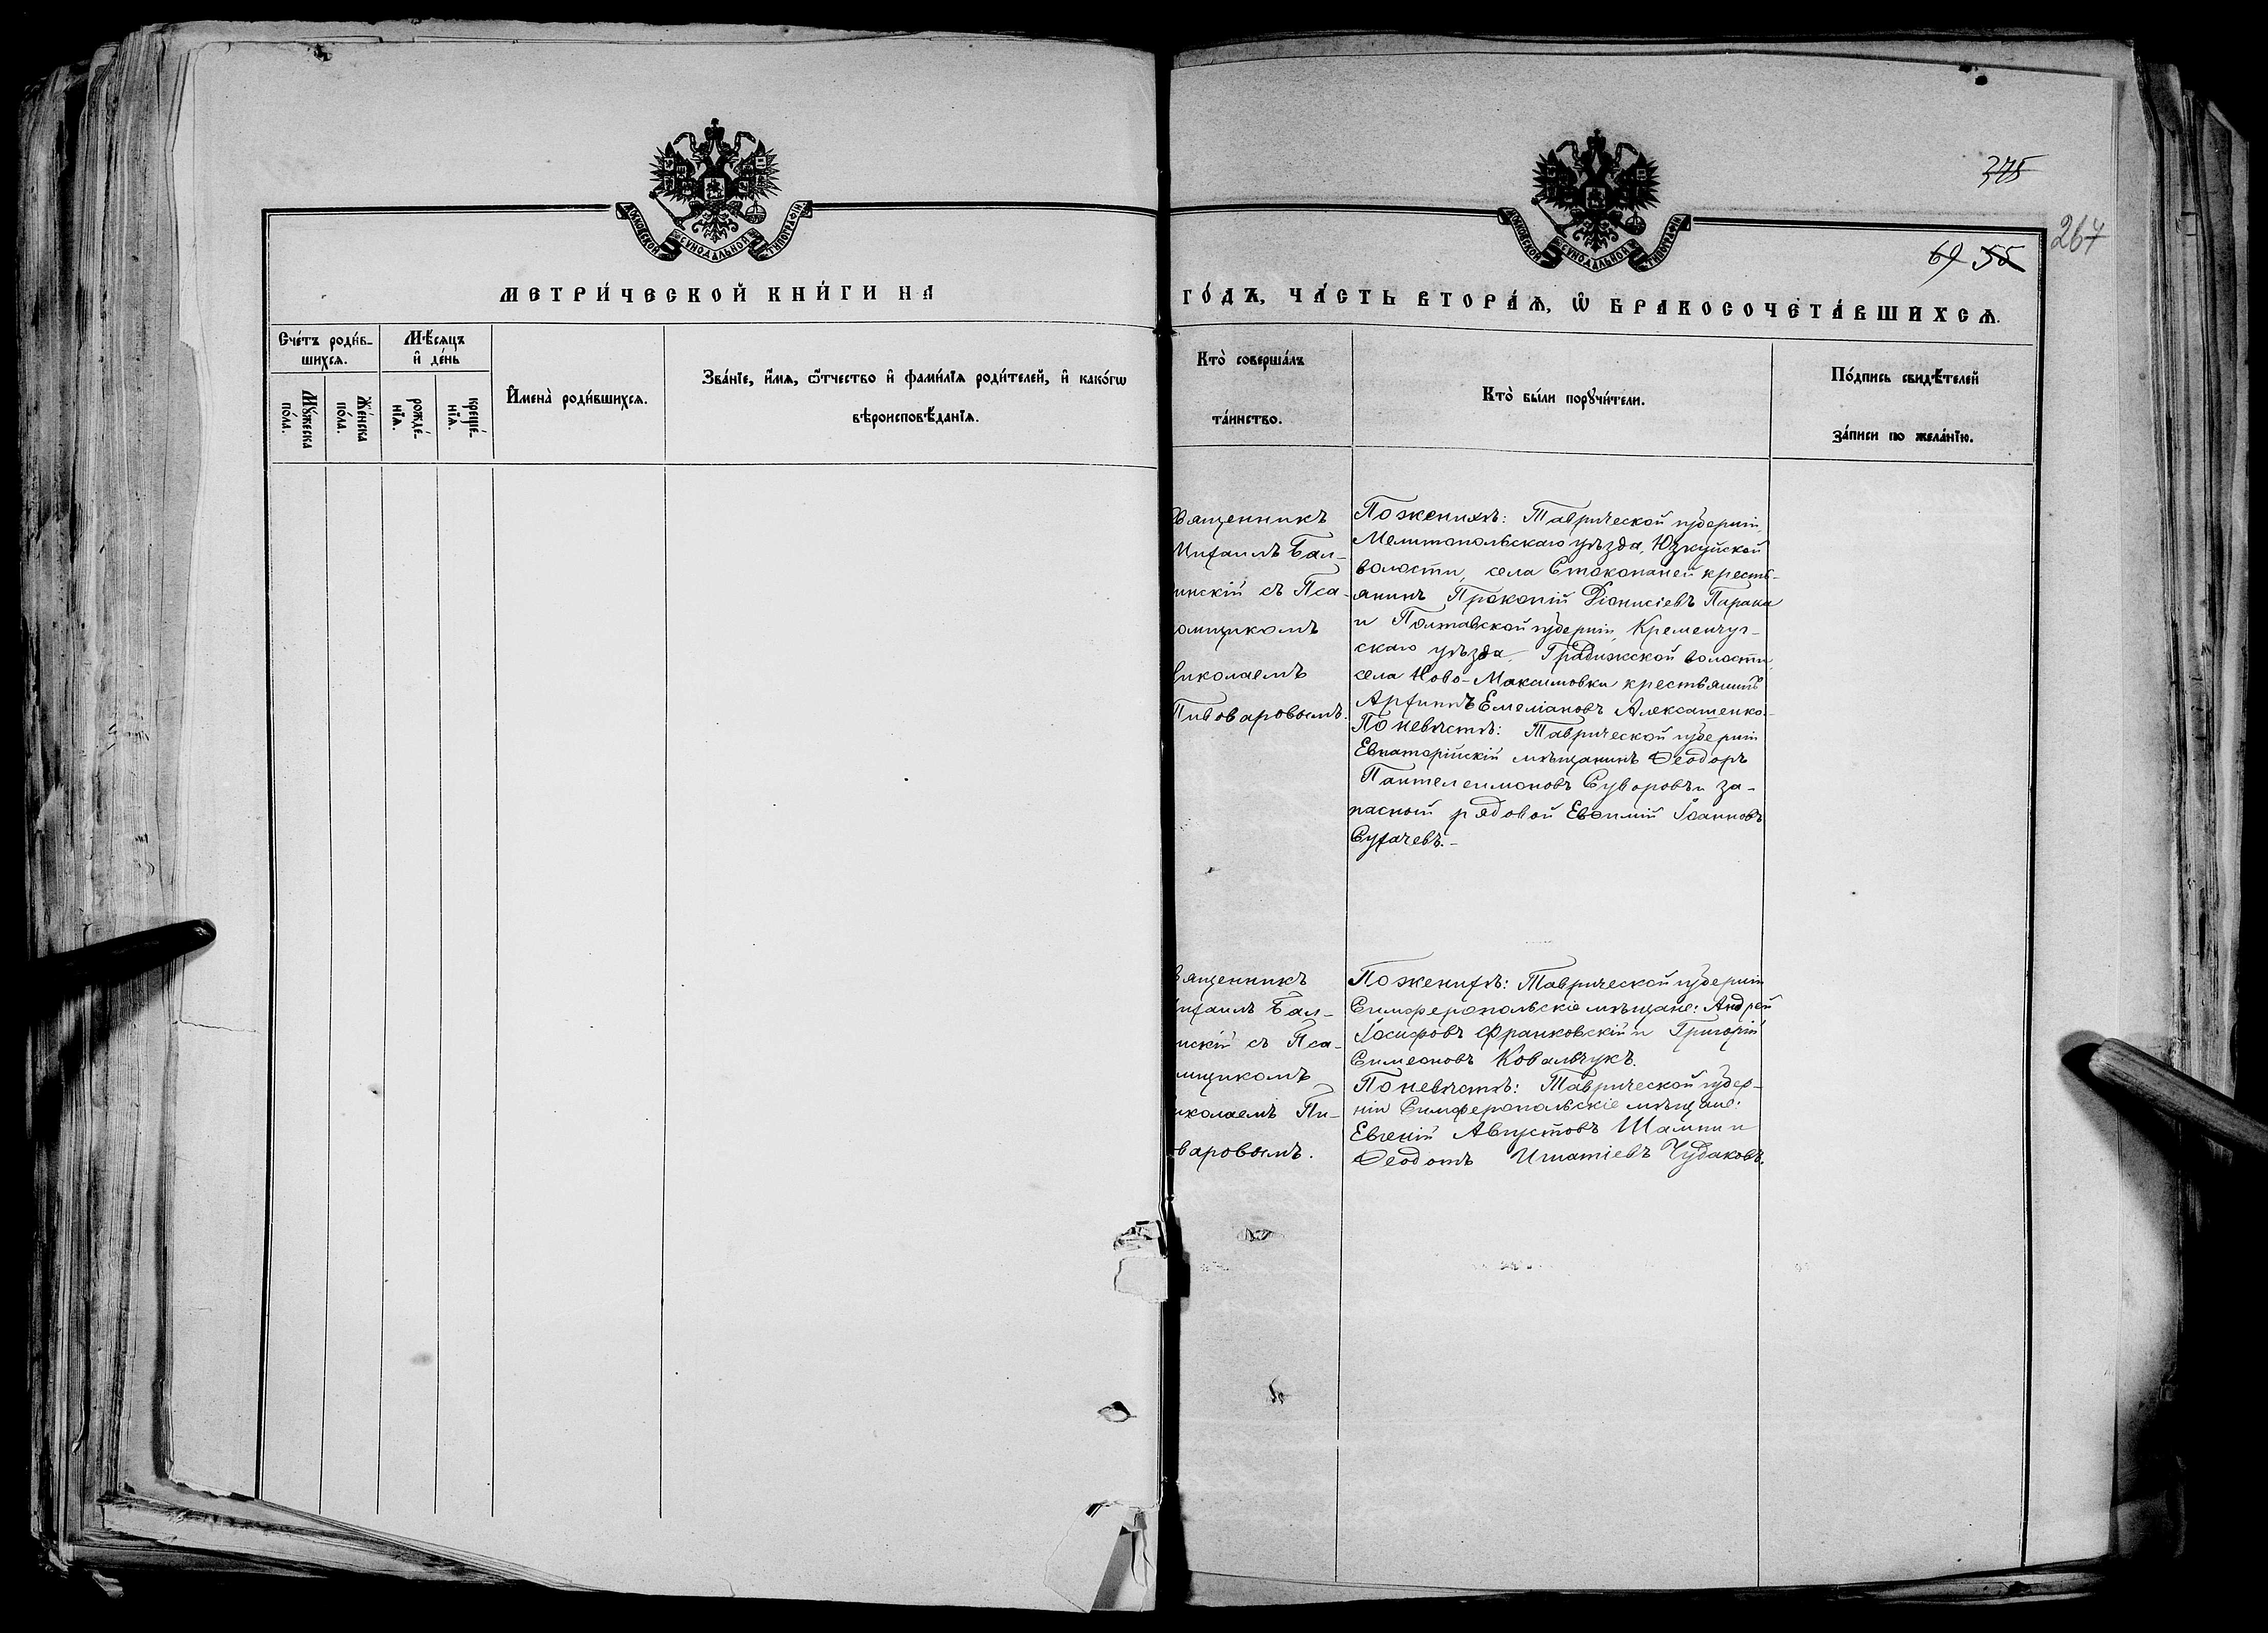 МОСКОВСКОЙ СУНОДАЛЬНОЙ ТИПОГРАФІИ
МЕТРИ́ЧЕСКОЙ КНИ́ГИ НА
Сче́тъ роди́в-
шихсѧ.
Мѣ́сѧцъ
и҆ де́нь
Мꙋ́жеска
по́ла.
Же́нска
по́ла.
рожде́-
нїѧ.
креще́-
нїѧ.
И҆мена̀ роди́вшихсѧ.
Зва́нїе, и҆́мѧ, ѻ҆́тчество и҆ фами́лїѧ роди́телей, и҆ како́гѡ
вѣроисповѣ́данїѧ.
МОСКОВСКОЙ СУНОДАЛЬНОЙ ТИПОГРАФІИ
375
267
69 55
ГО́ДЪ, ЧА́СТЬ ВТОРА́Ѧ, Ѡ҆ БРАКОСОЧЕТА́ВШИХСѦ.
Кто̀ соверша́лъ
та́инство.
Кто̀ бы́ли порꙋчи́тели.
По́дпись свидѣ́телей
за́писи по жела́нїю.
вященникъ
Михаилъ Бал-
инскій съ Пса-
омщикомъ
иколаемъ
Пивоваровымъ.
По женихѣ: Таврической губерніи
Мелитопольскаго уѣзда, Юзкуйской
волости, села Стокопаней кресть-
янинъ Прокопій Діонисіевъ Парака
и Полтавской губерніи, Кременчуг-
скаго уѣзда, Градижской волости,
села Ново-Максимовки крестьянинъ
Архиппъ Емеліановъ Алексашенко.
По невѣстѣ: Таврической губерніи
Евпаторійскій мѣщанинъ Ѳеодоръ
Пантелеимоновъ Суворовъ и за-
пасной рядовой Евѳимій Іоанновъ
Сухачевъ.-
вященникъ
ихаилъ Бал-
нскій съ Пса-
мщикомъ
иколаемъ Пи-
варовымъ.
По женихѣ: Таврической губерніи
Симферопольскіе мѣщане: Андрей
Іосифовъ Франковскій и Григорій
Симеоновъ Ковальчукъ.
По невѣстѣ: Таврической губер-
ніи Симферопольскіе мѣщане:
Евгеній Августовъ Шампи и
Ѳеодотъ Игнатіевъ Чудаковъ.